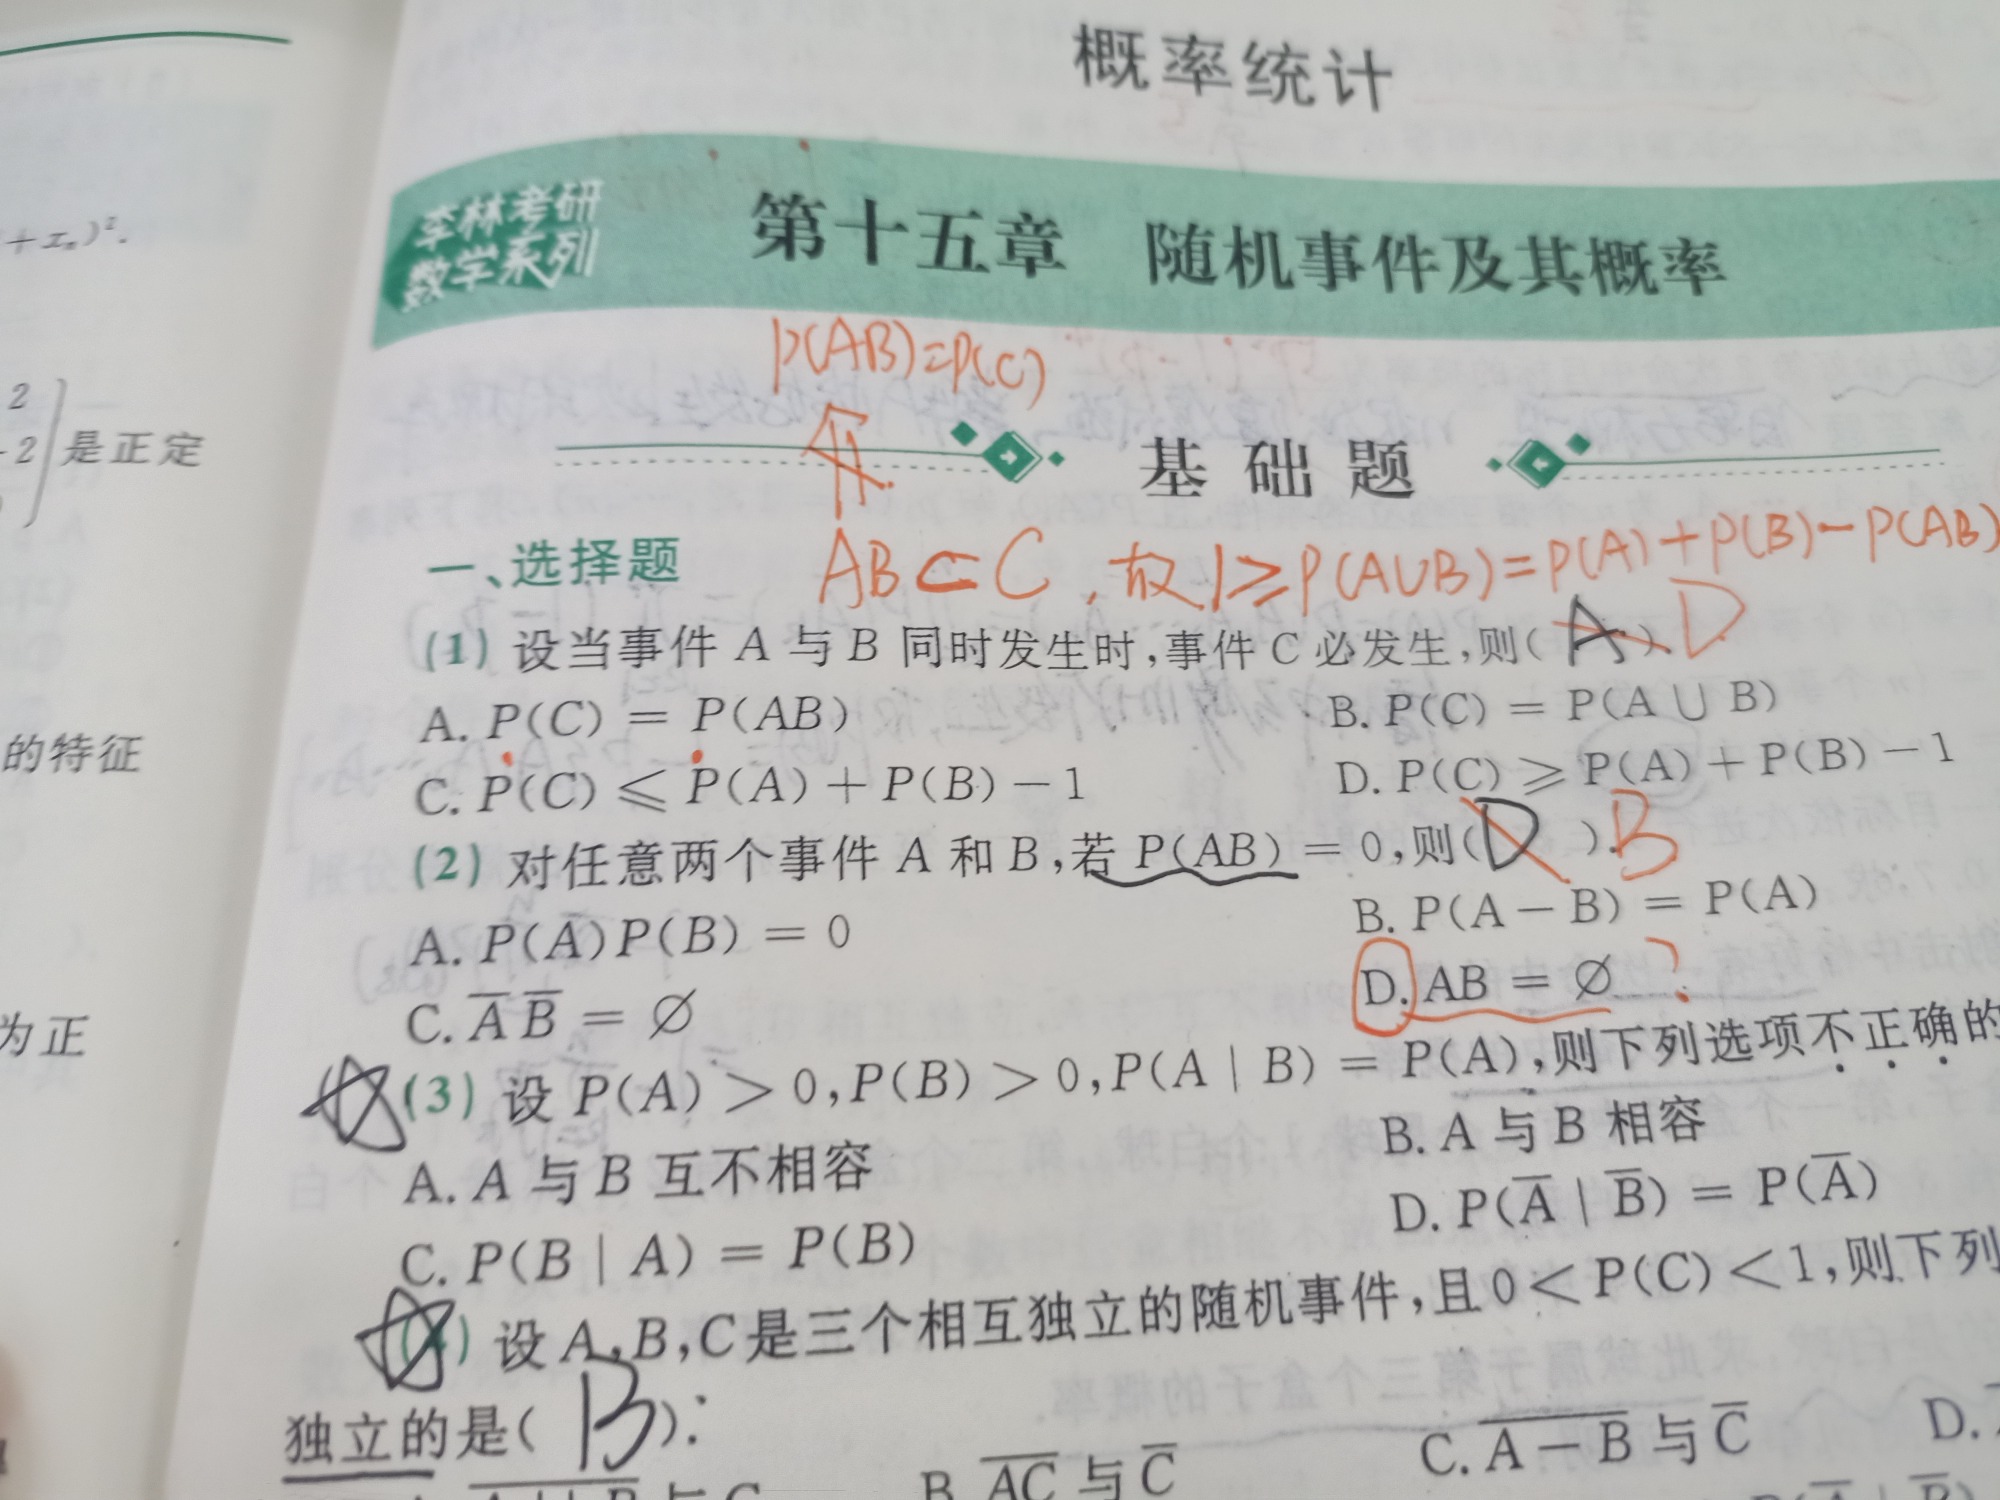 概率统计
李林考研
数学系列
第十五章 随机事件及其概率
+xₙ)².
P(AB)=P(C)
2
-2
是正定
基础题
AB⊂C,故1≥P(A∪B)=P(A)+P(B)-P(AB)
一、选择题
(1) 设当事件 A 与 B 同时发生时,事件 C 必发生,则( A ). D
A. P(C) = P(AB)
B. P(C) = P(A ∪ B)
的特征
C. P(C) ≤ P(A) + P(B) - 1
D. P(C) ≥ P(A) + P(B) - 1
(2) 对任意两个事件 A 和 B,若 P(AB) = 0,则( D ). B
A. P(A)P(B) = 0
B. P(A - B) = P(A)
C. A̅ B̅ = ∅
D. AB = ∅ ?
为正
(3) 设 P(A) > 0,P(B) > 0,P(A | B) = P(A),则下列选项不正确的
A. A 与 B 互不相容
B. A 与 B 相容
C. P(B | A) = P(B)
D. P(A̅ | B̅) = P(A̅)
(4) 设 A,B,C是三个相互独立的随机事件,且 0 < P(C) < 1,则下列
独立的是( B ):
B. A̅C̅ 与 C̅
C. A̅ ̅-̅ ̅B̅ 与 C̅
D.